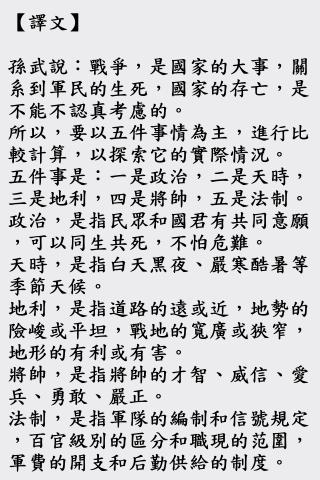 【譯文】
孫武說：戰爭，是國家的大事，關
系到軍民的生死，國家的存亡，是
不能不認真考慮的。
所以，要以五件事情為主，進行比
較計算，以探索它的實際情況。
五件事是：一是政治，二是天時，
三是地利，四是將帥，五是法制。
政治，是指民眾和國君有共同意願
，可以同生共死，不怕危難。
天時，是指白天黑夜、嚴寒酷暑等
季節天候。
地利，是指道路的遠或近，地勢的
險峻或平坦，戰地的寬廣或狹窄，
地形的有利或有害。
將帥，是指將帥的才智、威信、愛
兵、勇敢、嚴正。
法制，是指軍隊的編制和信號規定
，百官級別的區分和職現的范圍，
軍費的開支和后勤供給的制度。